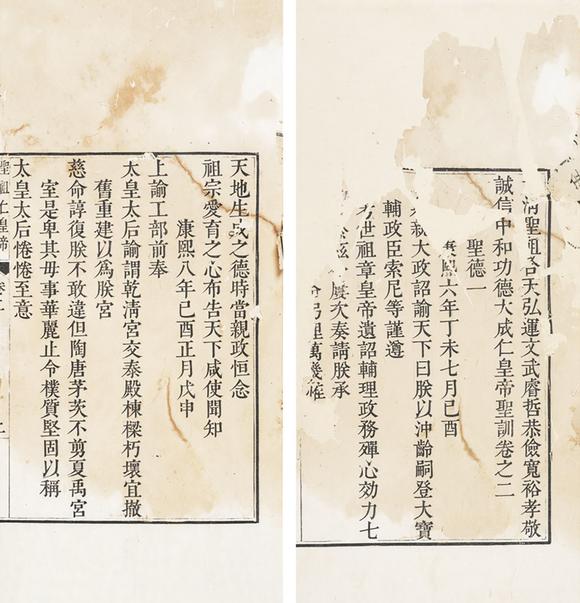 淸聖祖合天弘運文武睿哲恭儉寬裕孝敬
誠信中和功德大成仁皇帝聖訓卷之二
聖德一
康熙六年丁未七月己酉
親大政詔諭天下曰朕以沖齡嗣登大寶
輔政臣索尼等謹遵
世祖章皇帝遺詔輔理政務殫心効力七
屢次奏請朕承
理萬幾惟
天地生成之德時當親政恒念
祖宗愛育之心布告天下咸使聞知
康熙八年己酉正月戊申
上諭工部前奉
太皇太后諭謂乾淸宮交泰殿棟樑朽壞宜撤
舊重建以爲朕宮
慈命諄復朕不敢違但陶唐茅茨不剪夏禹宮
室是卑其毋事華麗止令樸質堅固以稱
太皇太后惓惓至意
聖祖仁皇帝